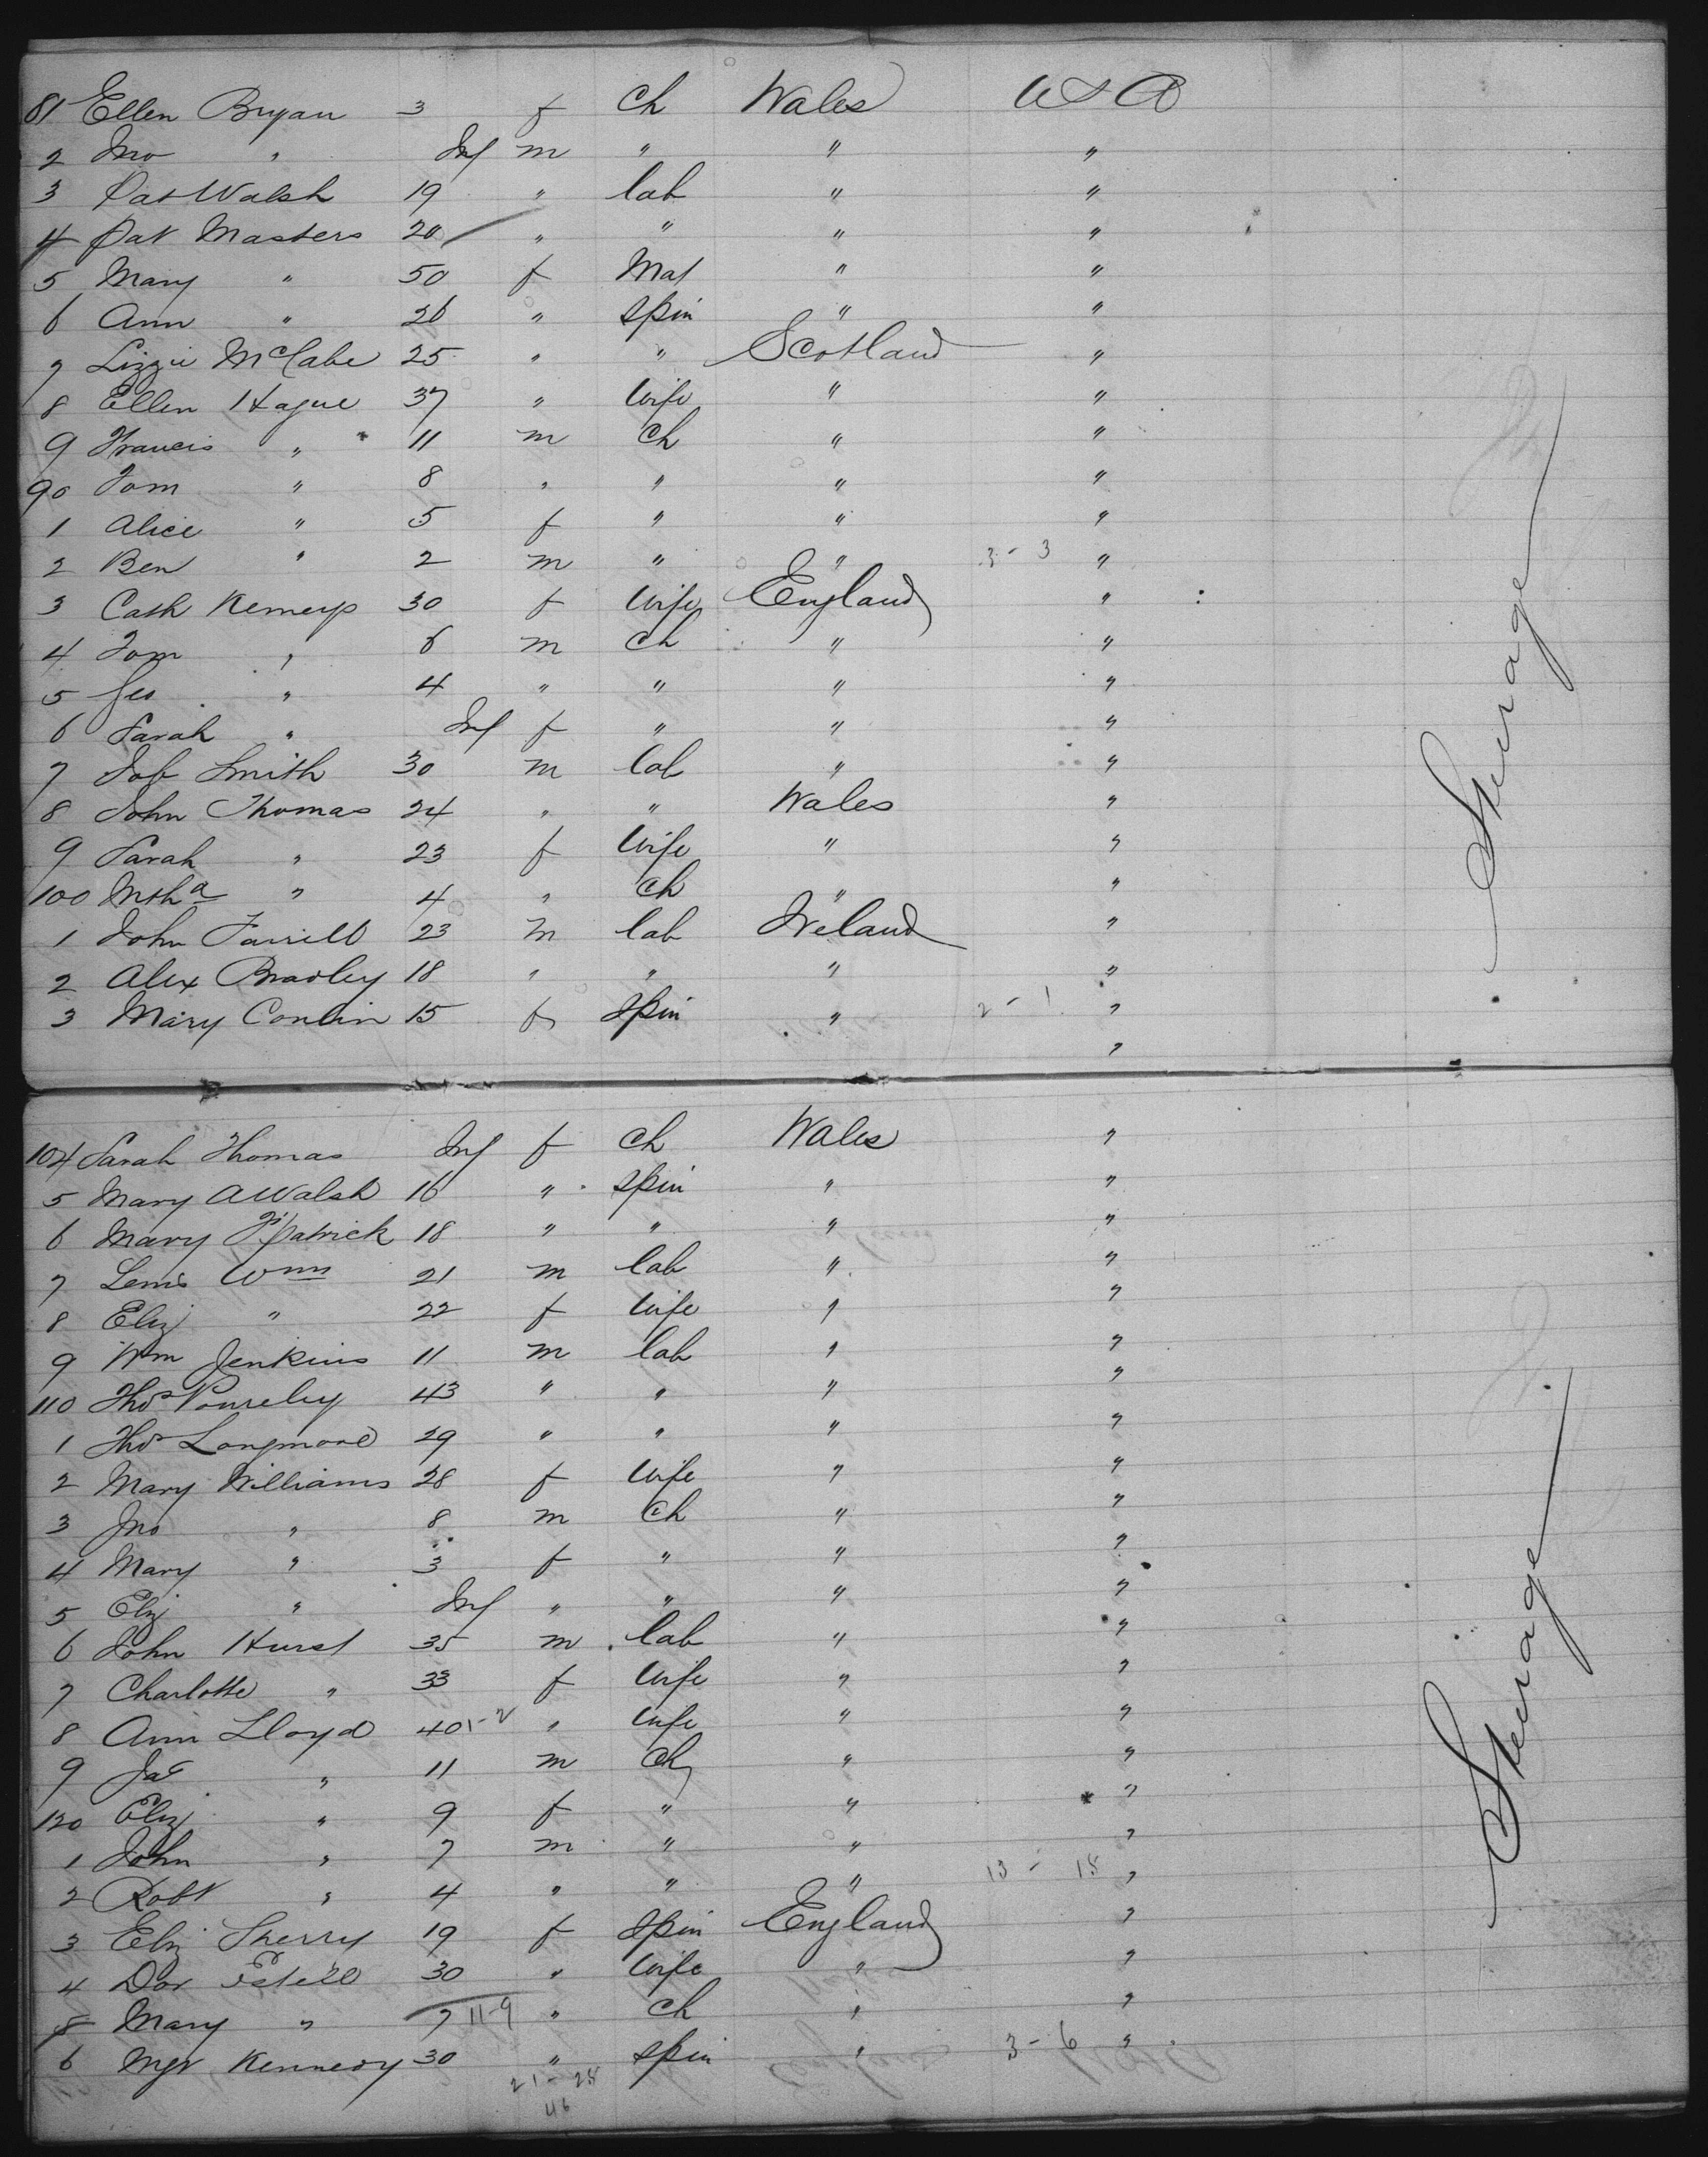 81 Ellen Bryan 3 f Ch Wales U S A
2 Jno " Inf m " " "
3 Pat Walsh 19 " lab " "
4 Pat Masters 20 " " " "
5 Mary " 50 f Mat " "
6 Ann " 26 " Spin " "
7 Lizzie McCabe 25 " " Scotland "
8 Ellen Hague 37 " Wife " "
9 Francis " 11 m Ch " "
90 Tom " 8 " " " "
1 Alice " 5 f " " "
2 Ben " 2 m " " 3 - 3 "
3 Cath Kemeys 30 f Wife England "
4 Tom " 6 m Ch " "
5 Geo " 4 " " " "
6 Sarah " Inf f " " "
7 Job Smith 30 m lab " "
8 John Thomas 24 " " Wales "
9 Sarah " 23 f Wife " "
100 Mtha " 4 " Ch " "
1 John Farrell 23 m lab Ireland "
2 Alex Bradley 18 " " " "
3 Mary Conlin 15 f Spin " 2 - 1 "
"
104 Sarah Thomas Inf f Ch Wales "
5 Mary A Walsh 16 " Spin " "
6 Mary Fpatrick 18 " " " "
7 Lewis Wms 21 m lab " "
8 Eliz " 22 f Wife " "
9 Wm Jenkins 11 m lab " "
110 Thos 43 " " " "
1 Thos Longmore 29 " " " "
2 Mary Williams 28 f Wife " "
3 Jno " 8 m Ch " "
4 Mary " 3 f " " "
5 Eliz " Inf " " " "
6 John Hurst 35 m lab " "
7 Charlotte " 33 f Wife " "
8 Ann Lloyd 40 1-2 " Wife " "
9 Jas " 11 m Ch " "
120 Eliz " 9 f " " "
1 John " 7 m " " "
2 Robt " 4 " " " 13 - 18 "
3 Eliz Sherry 19 f Spin England "
4 Dor Estell 30 " Wife " "
5 Mary " 7 11-9 " Ch " "
6 Mgt Kennedy 30 " Spin " 3 - 6 "
21 - 25
46
Steerage
Steerage